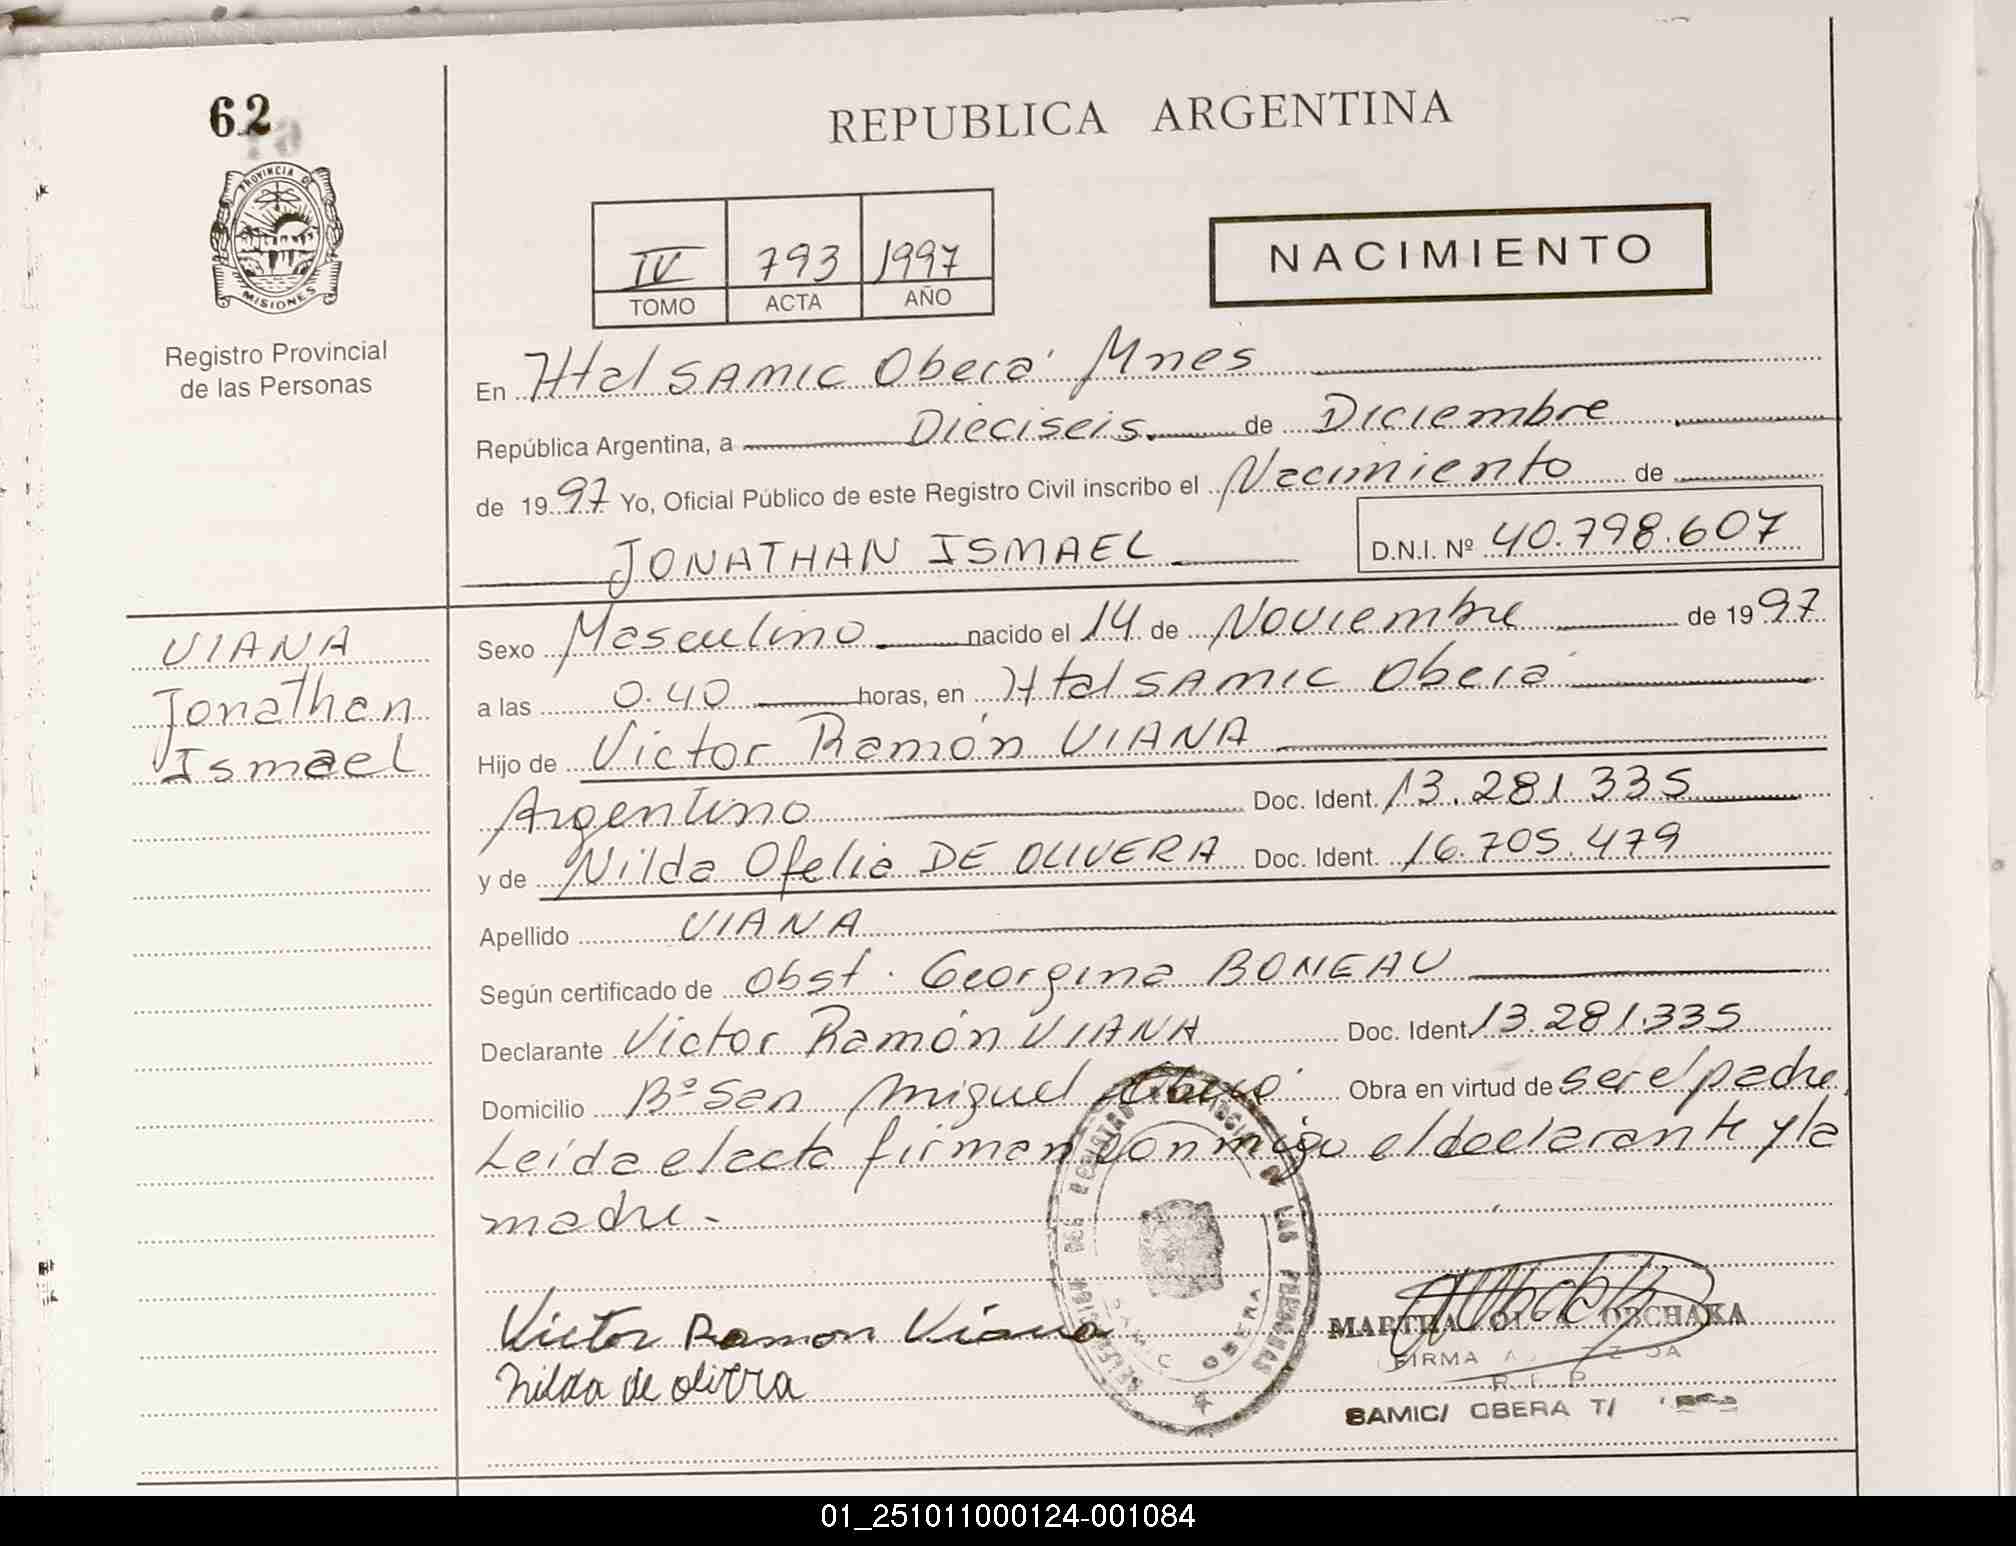 62
REPUBLICA ARGENTINA
PROVINCIA DE
MISIONES
Registro Provincial
de las Personas
IV 793 1997
TOMO ACTA AÑO
NACIMIENTO
En Htal SAMIC Oberá Mnes
República Argentina, a Dieciseis de Diciembre
de 1997 Yo, Oficial Público de este Registro Civil inscribo el Nacimiento de
JONATHAN ISMAEL D.N.I. Nº 40.798.607
VIANA
Jonathan
Ismael
Sexo Masculino nacido el 14 de Noviembre de 1997
a las 0.40 horas, en Htal SAMIC Oberá
Hijo de Victor Ramón VIANA
Argentino Doc. Ident. 13.281.335
y de Nilda Ofelia DE OLIVERA Doc. Ident. 16.705.479
Apellido VIANA
Según certificado de Obst. Georgina BONEAU
Declarante Victor Ramón VIANA Doc. Ident. 13.281.335
Domicilio Bº San Miguel Oberá Obra en virtud de ser el padre,
Leída el acta firman conmigo el declarante y la
madre.-
Victor Ramon Viana
Nilda de olivera
DELEGACION DEL REGISTRO PROVINCIAL DE LAS PERSONAS
SAMIC
OBERA
MARTHA OBCHAKA
FIRMA
R. P.
SAMIC/ OBERA T/
01_251011000124-001084